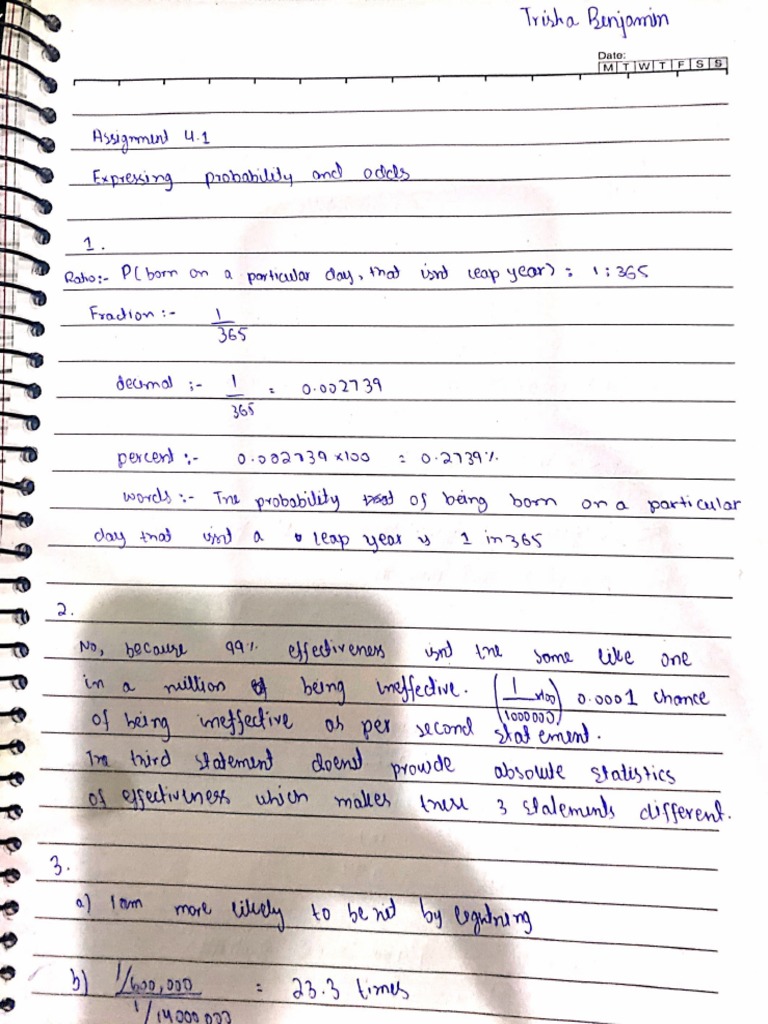 Trisha Benjamin
Date:
M T W T F S S
Assignment 4.1
Expressing probability and odds
1.
Ratio:- P(born on a particular day, that isnt leap year) = 1:365
Fraction :- 1/365
decimal :- 1/365 = 0.002739
percent :- 0.002739 x100 = 0.2739%
words :- The probability of being born on a particular
day that isnt a leap year is 1 in 365
2.
No, because 99% effectiveness isnt the same like one
in a million of being ineffective. (1/1000000 x100) 0.0001 chance
of being ineffective as per second statement.
The third statement doesnt provide absolute statistics
of effectiveness which makes these 3 statements different.
3.
a) I am more likely to be hit by lightning
b) 1/600,000 / 1/14000000 = 23.3 times